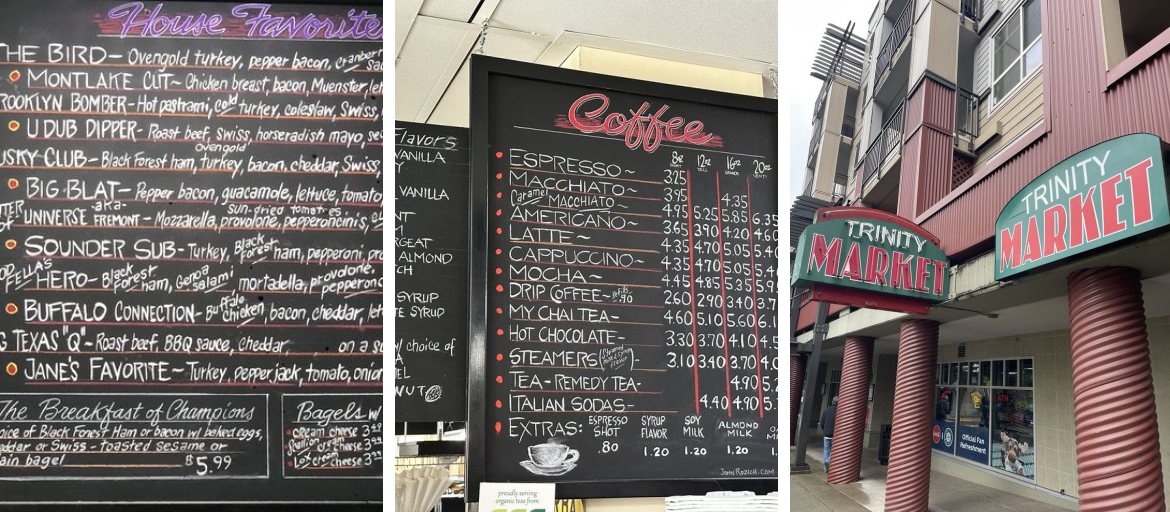 House Favorite
THE BIRD - Ovengold turkey, pepper bacon, cranberry sau
MONTLAKE CUT - Chicken breast, bacon, Muenster, let
ROOKLYN BOMBER - Hot pastrami, cold turkey, coleslaw, Swiss,
U DUB DIPPER - Roast beef, Swiss, horseradish mayo, se
USKY CLUB - Black Forest ham, ovengold turkey, bacon, cheddar, Swiss,
BIG BLAT - Pepper bacon, guacamole, lettuce, tomato
UNIVERSE -aka- FREMONT - Mozzarella, provolone, sun-dried tomatoes, pepperoncinis,
SOUNDER SUB - Turkey, Black Forest ham, pepperoni, pro
HERO - Black Forest ham, Genoa salami, mortadella, provolone, pepperonc
BUFFALO CONNECTION - Buffalo chicken, bacon, cheddar, let
TEXAS "Q" - Roast beef, BBQ sauce, cheddar, on a s
JANE'S FAVORITE - Turkey, pepper jack, tomato, onion
The Breakfast of Champions
oice of Black Forest Ham or bacon w/ baked eggs,
eddar or Swiss - toasted sesame or
ain bagel $5.99
Bagels w/
cream cheese 3
cream cheese 3
Lox cream cheese 3
Flavors
VANILLA
VANILLA
NT
RGEAT
ALMOND
TCH
SYRUP
TE SYRUP
w/ choice of
A
EL
NUT
Coffee
8oz 12oz 16oz 20oz
SHORT TALL GRANDE VENTI
ESPRESSO ~ 3.25
MACCHIATO ~ 3.95 4.35
Caramel MACCHIATO ~ 4.95 5.25 5.85 6.35
AMERICANO ~ 3.65 3.90 4.20 4.60
LATTE ~ 4.35 4.70 5.05 5.40
CAPPUCCINO ~ 4.35 4.70 5.05 5.40
MOCHA ~ 4.45 4.85 5.35 5.9
DRIP COFFEE ~ .90 2.60 2.90 3.40 3.7
MY CHAI TEA ~ 4.60 5.10 5.60 6.1
HOT CHOCOLATE ~ 3.30 3.70 4.10 4.5
STEAMERS 3.10 3.40 3.70 4.0
TEA - REMEDY TEA - 4.90 5.2
ITALIAN SODAS ~ 4.40 4.90 5.
EXTRAS: ESPRESSO SHOT SYRUP FLAVOR SOY MILK ALMOND MILK
.80 1.20 1.20 1.20 1.
JOHNROZICH.COM
proudly serving
organic teas from
TRINITY
MARKET
TRINITY
MARKET
ATM
Official Fan
Refreshment